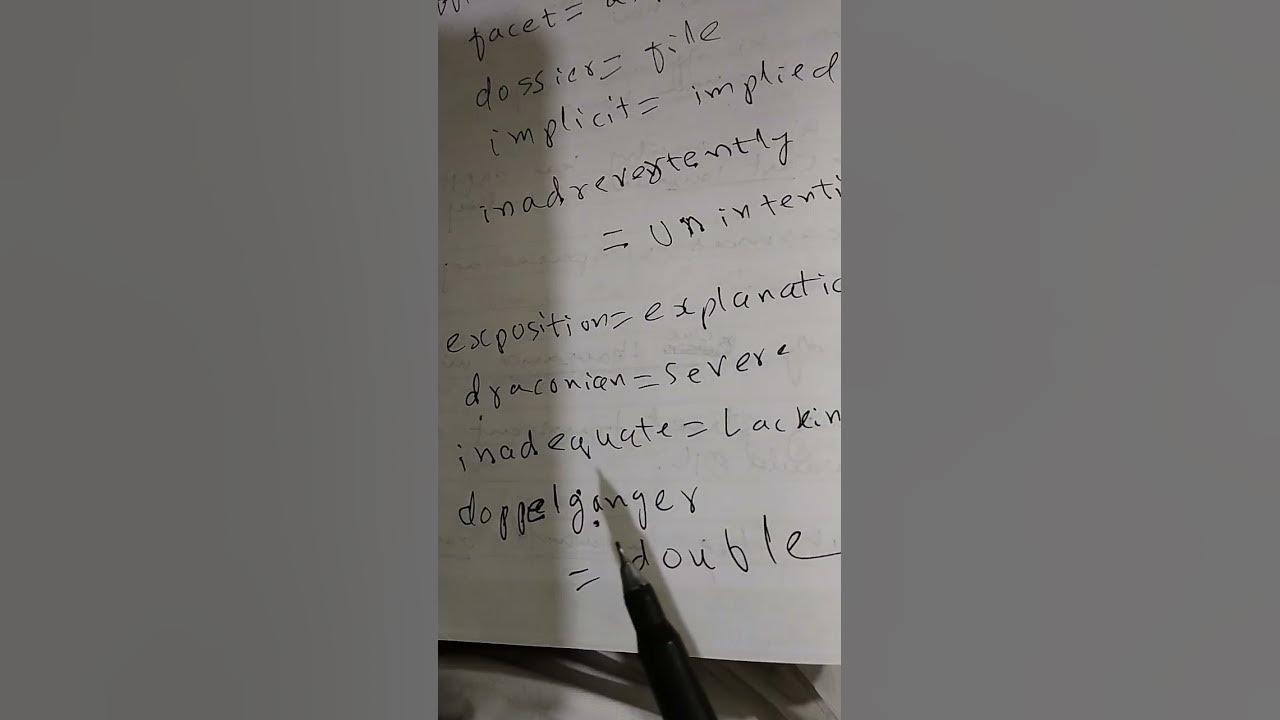 facet=
dossier= file
implicit= implied
inadrevertently
= Unintenti
exposition= explanatic
draconian=severe
inadequate=Lackin
doppelganger
= double